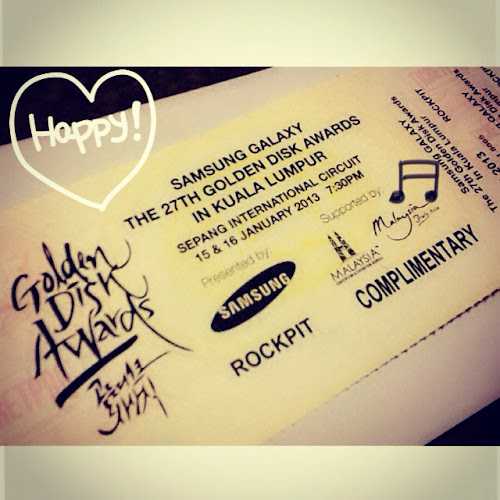 Happy!
SAMSUNG GALAXY
THE 27TH GOLDEN DISK AWARDS
IN KUALA LUMPUR
SEPANG INTERNATIONAL CIRCUIT
15 & 16 JANUARY 2013 7:30PM
Presented by:
SAMSUNG
Supported by:
MALAYSIA
Malaysia
ROCKPIT
COMPLIMENTARY
Golden
Disk
Awards
골든디스크
시상식
ROCKPIT
Samsung GALAXY
The 27th Golden Disk Awards
in Kuala Lumpur
2013